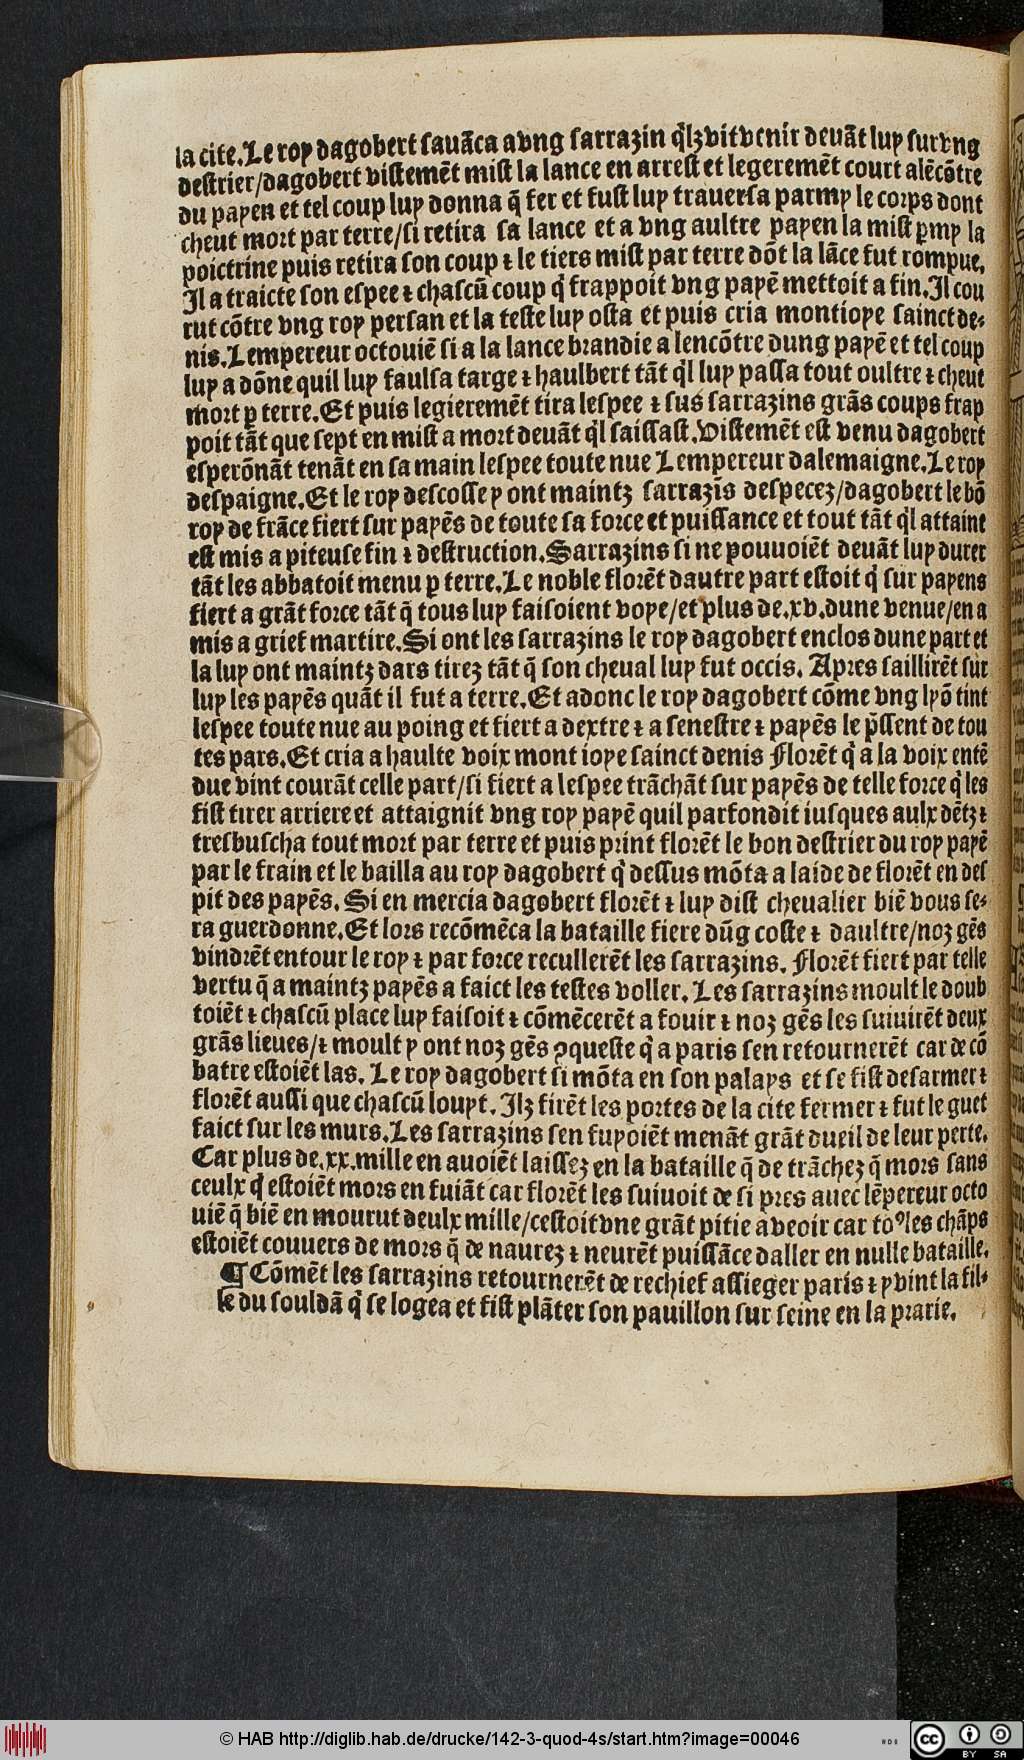 la cite. Le roy dagobert sauāca a vng sarrazin q̄lz vit venir deuāt luy sur vng
destrier/dagobert vistemēt mist la lance en arrest et legeremēt court alēcōtre
du payen et tel coup luy donna q̄ fer et fust luy trauersa parmy le corps dont
cheut mort par terre/si retira sa lance et a vng aultre payen la mist ꝑmy la
poictrine puis retira son coup ⁊ le tiers mist par terre dōt la lāce fut rompue.
Il a traicte son espee ⁊ chascū coup q̄ frappoit vng payē mettoit a fin. Il cou
rut cōtre vng roy persan et la teste luy osta et puis cria montioye sainct de⸗
nis. Lempereur octouiē si a la lance brandie a lencōtre dung payē et tel coup
luy a dōne quil luy faulsa targe ⁊ haulbert tāt q̄l luy passa tout oultre ⁊ cheut
mort ꝑ terre. Et puis legieremēt tira lespee ⁊ sus sarrazins grās coups frap
poit tāt que sept en mist a mort deuāt q̄l saissast. Vistemēt est venu dagobert
esperōnāt tenāt en sa main lespee toute nue Lempereur dalemaigne. Le roy
despaigne. Et le roy descosse y ont maintz sarrazīs despecez/dagobert le bō
roy de frāce fiert sur payēs de toute sa force et puissance et tout tāt q̄l attaint
est mis a piteuse fin ⁊ destruction. Sarrazins si ne pouuoiēt deuāt luy durer
tāt les abbatoit menu ꝑ terre. Le noble florēt dautre part estoit q̄ sur payens
fiert a grāt force tāt q̄ tous luy faisoient voye/et plus de .xv. dune venue/en a
mis a grief martire. Si ont les sarrazins le roy dagobert enclos dune part et
la luy ont maintz dars tirez tāt q̄ son cheual luy fut occis. Apres saillirēt sur
luy les payēs quāt il fut a terre. Et adonc le roy dagobert cōme vng lyō tint
lespee toute nue au poing et fiert a dextre ⁊ a senestre ⁊ payēs le p̄ssent de tou
tes pars. Et cria a haulte voix mont ioye sainct denis Florēt q̄ a la voix entē
due vint courāt celle part/si fiert a lespee trāchāt sur payēs de telle force q̄ les
fist tirer arriere et attaignit vng roy payē quil parfondit iusques aulx dētz ⁊
tresbuscha tout mort par terre et puis print florēt le bon destrier du roy payē
par le frain et le bailla au roy dagobert q̄ dessus mōta a laide de florēt en des
pit des payēs. Si en mercia dagobert florēt ⁊ luy dist cheualier biē vous se⸗
ra guerdonne. Et lors recōmēca la bataille fiere dūg coste ⁊ daultre/noz gēs
vindrēt entour le roy ⁊ par force reculllerēt les sarrazins. Florēt fiert par telle
vertu q̄ a maintz payēs a faict les testes voller. Les sarrazins moult le doub
toiēt ⁊ chascū place luy faisoit ⁊ cōmēcerēt a fouir ⁊ noz gēs les suiuirēt deux
grās lieues/⁊ moult y ont noz gēs ꝯqueste q̄ a paris sen retournerēt car de cō
batre estoiēt las. Le roy dagobert si mōta en son palays et se fist desarmer ⁊
florēt aussi que chascū loupt. Ilz firēt les portes de la cite fermer ⁊ fut le guet
faict sur les murs. Les sarrazins sen fuyoiēt menāt grāt dueil de leur perte.
Car plus de .xx. mille en auoiēt laissez en la bataille q̄ de trāchez q̄ mors sans
ceulx q̄ estoiēt mors en fuiāt car florēt les suiuoit de si pres auec lēpereur octo
uiē q̄ biē en mourut deulx mille/cestoit vne grāt pitie a veoir car toꝰ les chāps
estoiēt couuers de mors q̄ de naurez ⁊ neurēt puissāce daller en nulle bataille.
¶ Cōmēt les sarrazins retournerēt de rechief assieger paris ⁊ y vint la fil⸗
le du souldā q̄ se logea et fist plāter son pauillon sur seine en la prarie.
© HAB http://diglib.hab.de/drucke/142-3-quod-4s/start.htm?image=00046
cc BY SA